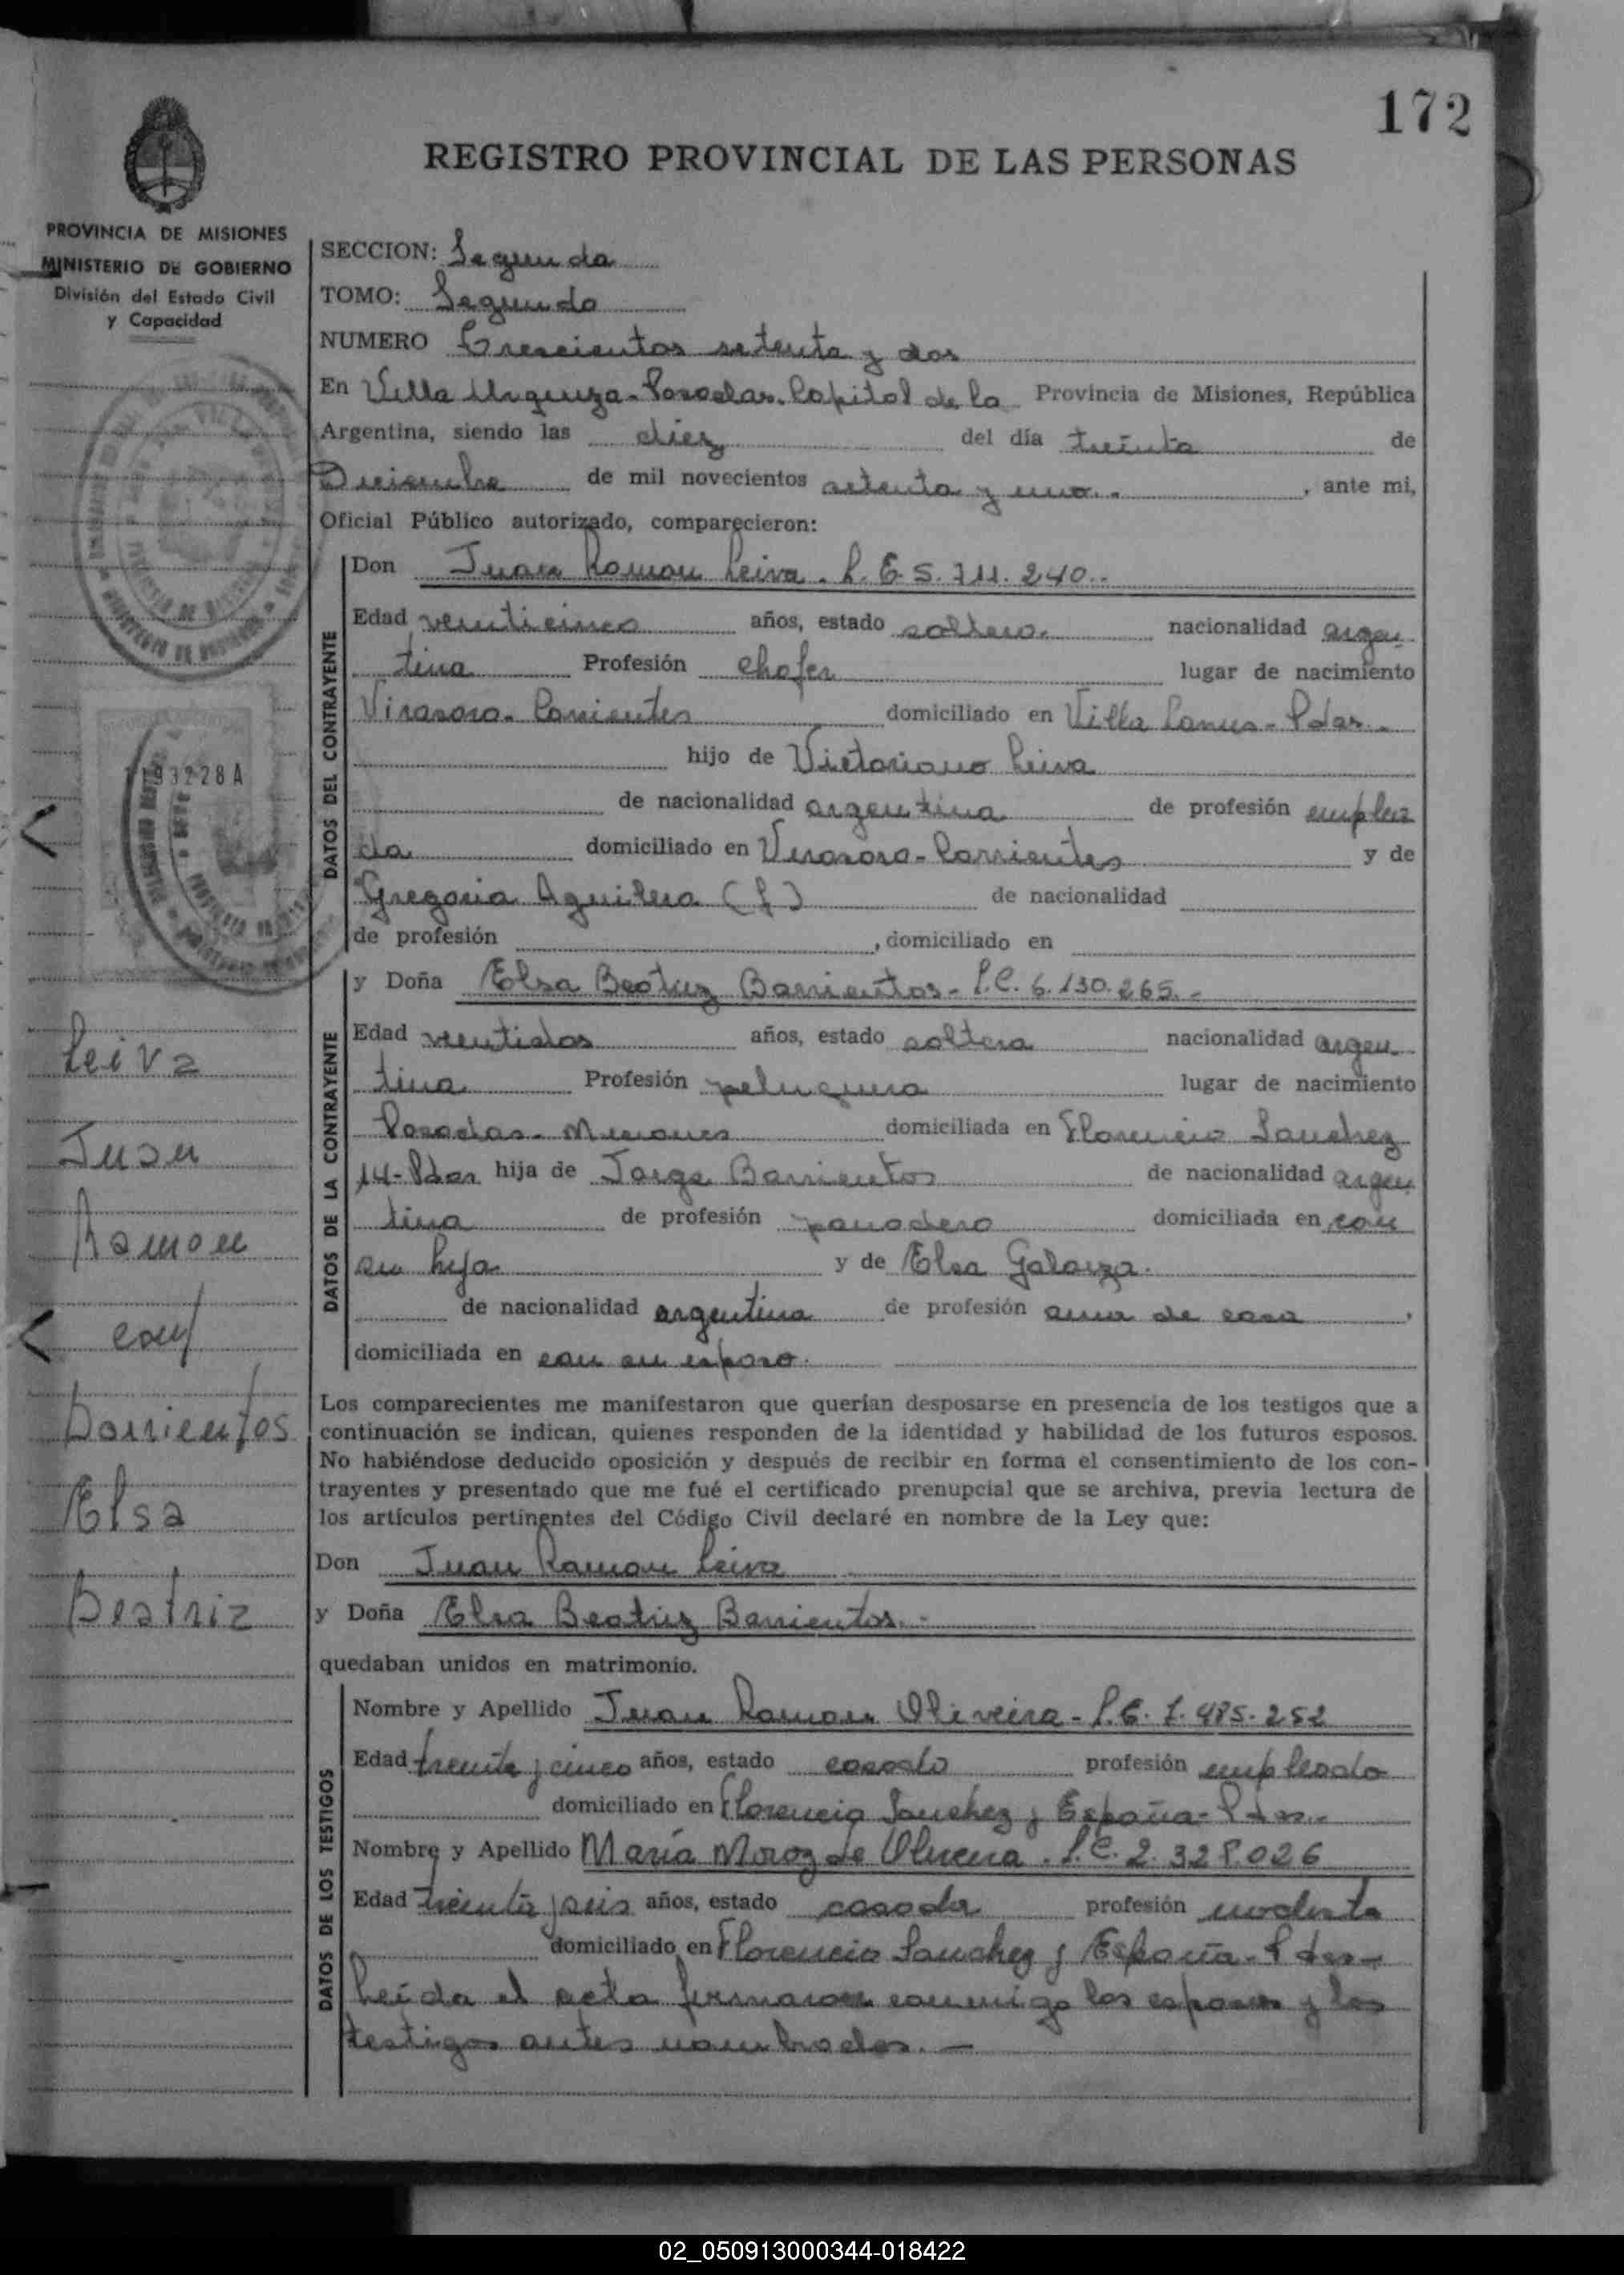 172
REGISTRO PROVINCIAL DE LAS PERSONAS
PROVINCIA DE MISIONES
MINISTERIO DE GOBIERNO
División del Estado Civil
y Capacidad
SECCION: Segunda
TOMO: Segundo
NUMERO Trescientos setenta y dos
En Villa Urquiza - Posadas. Capital de la Provincia de Misiones, República
Argentina, siendo las diez del día treinta de
Diciembre de mil novecientos setenta y uno. , ante mi,
Oficial Público autorizado, comparecieron:
DATOS DEL CONTRAYENTE
Don Juan Ramon Leiva. L. E. 5.711.240.-
Edad veinticinco años, estado soltero. nacionalidad argen
tina Profesión chofer lugar de nacimiento
Virasoro - Corrientes domiciliado en Villa Lanus - Pdas.
hijo de Victoriano Leiva
de nacionalidad argentina de profesión emplea
do domiciliado en Virasoro - Corrientes y de
Gregoria Aguilera (f) de nacionalidad
de profesión , domiciliado en
193228A
DATOS DE LA CONTRAYENTE
y Doña Elsa Beatriz Barrientos - L.C. 6.130.265.-
Edad veintidos años, estado soltera nacionalidad argen
tina Profesión peluquera lugar de nacimiento
Posadas - Misiones domiciliada en Florencio Sanchez
14 - Pdas hija de Jorge Barrientos de nacionalidad argen
tina de profesión panadero domiciliada en con
su hija y de Elsa Galarza.
de nacionalidad argentina de profesión ama de casa ,
domiciliada en con su esposo.
Leiva
Juan
Ramon
con/
Barrientos
Elsa
Beatriz
Los comparecientes me manifestaron que querían desposarse en presencia de los testigos que a
continuación se indican, quienes responden de la identidad y habilidad de los futuros esposos.
No habiéndose deducido oposición y después de recibir en forma el consentimiento de los con-
trayentes y presentado que me fué el certificado prenupcial que se archiva, previa lectura de
los artículos pertinentes del Código Civil declaré en nombre de la Ley que:
Don Juan Ramon Leiva
y Doña Elsa Beatriz Barrientos.-
quedaban unidos en matrimonio.
DATOS DE LOS TESTIGOS
Nombre y Apellido Juan Ramon Oliveira - L.E. 7.485.252
Edad treinta y cinco años, estado casado profesión empleado
domiciliado en Florencio Sanchez y España - Pdas.-
Nombre y Apellido María Moroz de Oliveira. L.C. 2.328.026
Edad treinta y seis años, estado casada profesión modista
domiciliado en Florencio Sanchez y España - Pdas -
Leída el acta firmaron conmigo los esposos y los
testigos antes nombrados. —
02_050913000344-018422